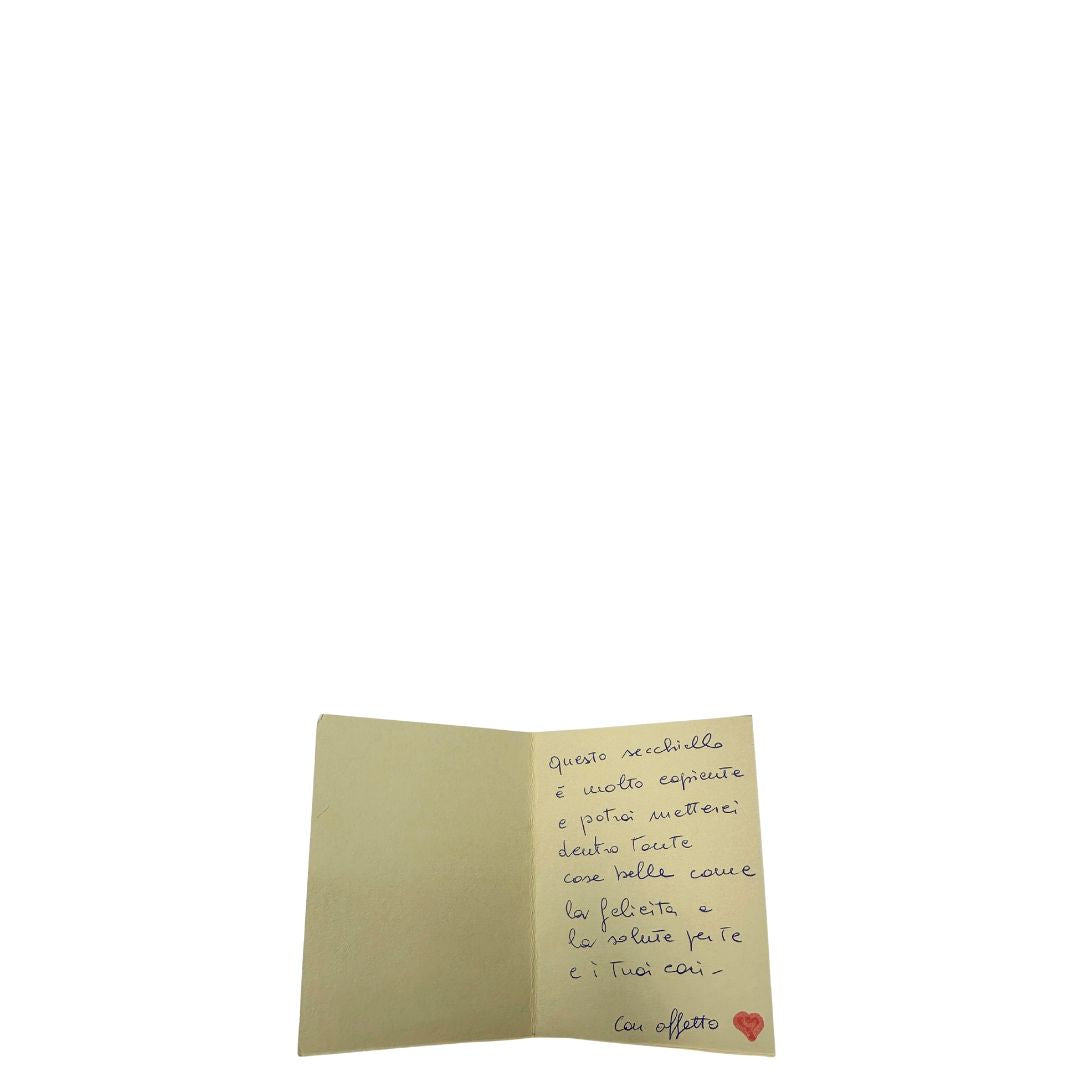 Questo secchiello
è molto capiente
e potrai metterci
dentro tante
cose belle come
la felicità e
la salute per te
e i Tuoi cari -
Con affetto